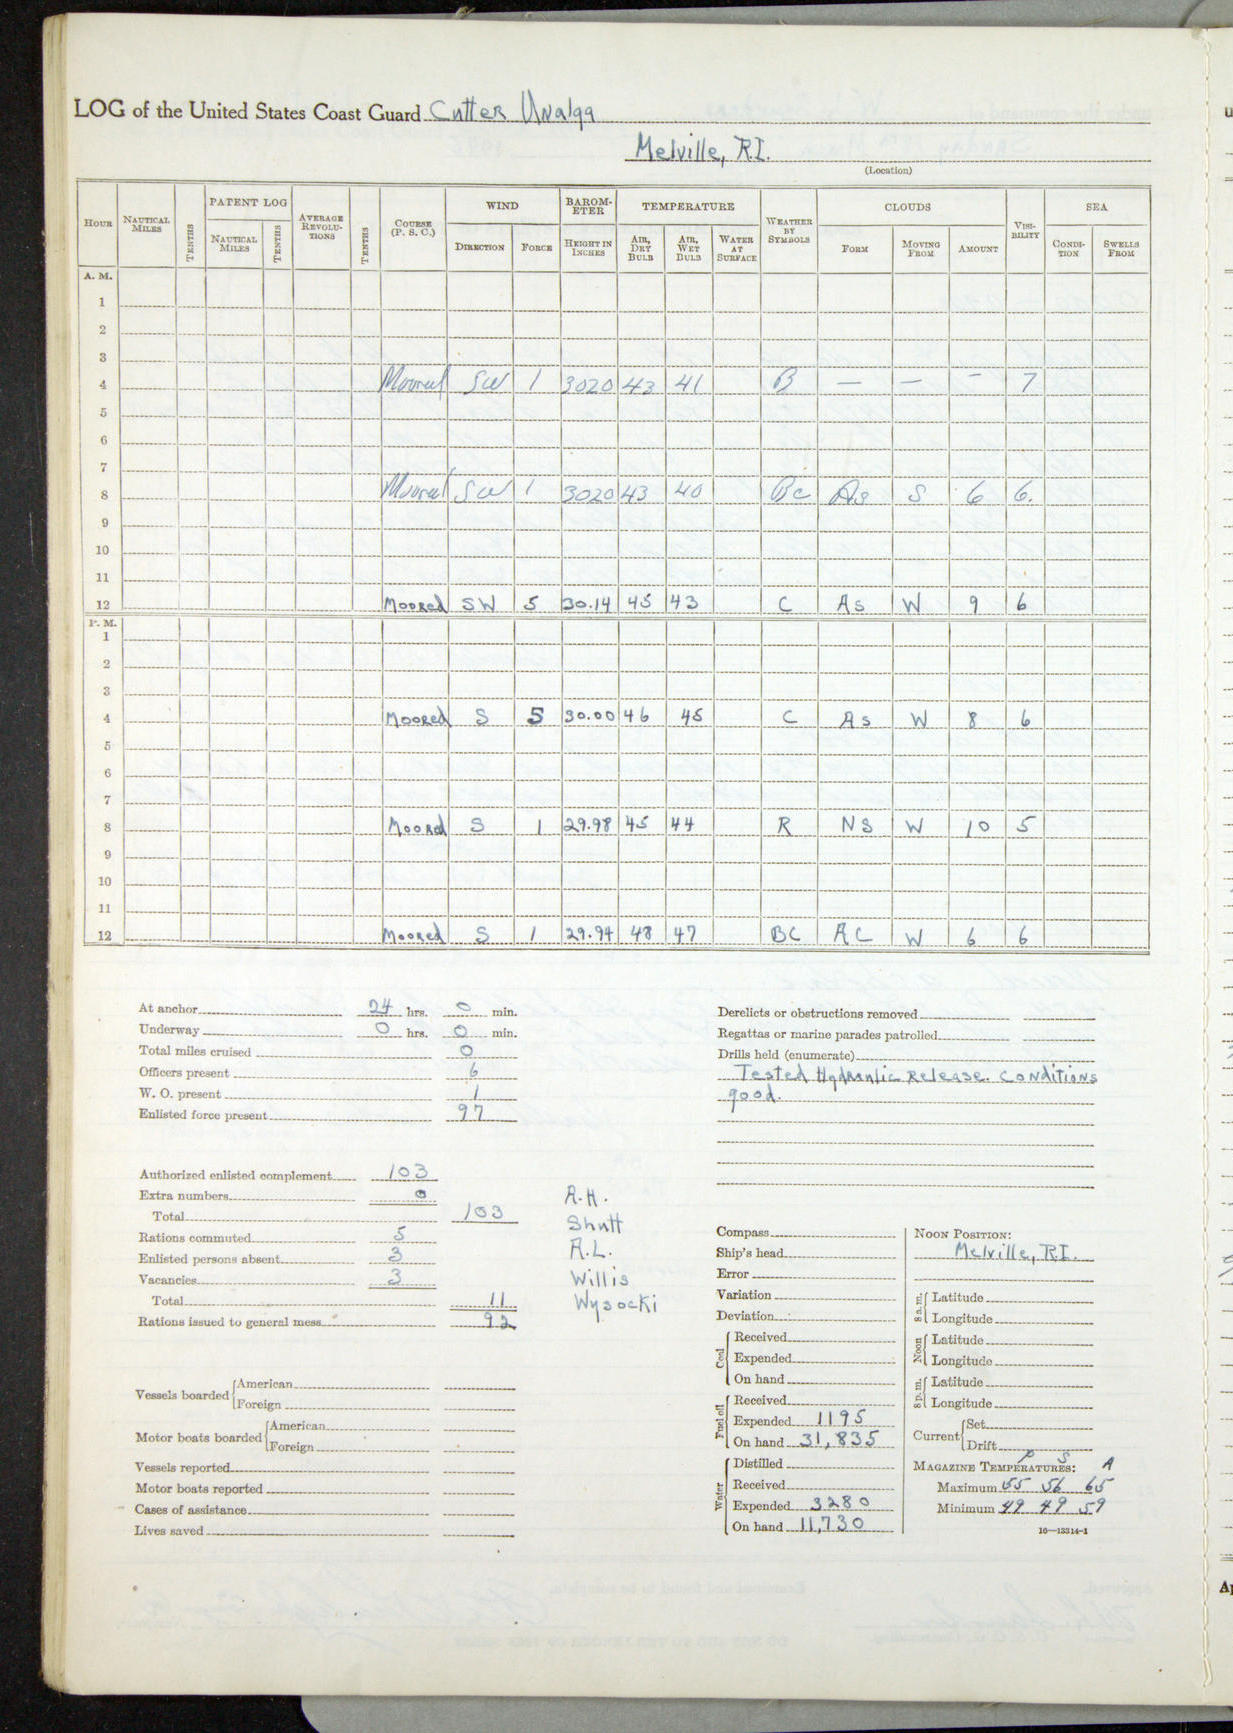 LOG of the United States Coast Guard Cutter Unalga
Melville, R.I.
(Location)
HOUR NAUTICAL MILES TENTHS PATENT LOG NAUTICAL MILES TENTHS AVERAGE REVOLUTIONS TENTHS COURSE (P. S. C.) WIND DIRECTION FORCE BAROMETER HEIGHT IN INCHES TEMPERATURE AIR, DRY BULB AIR, WET BULB WATER AT SURFACE WEATHER BY SYMBOLS CLOUDS FORM MOVING FROM AMOUNT VISIBILITY SEA CONDITION SWELLS FROM
A. M.
1
2
3
4 Moored SW 1 3020 43 41 B — — — 7
5
6
7
8 Moored SW 1 3020 43 40 Bc As S 6 6.
9
10
11
12 Moored SW 5 30.14 45 43 C As W 9 6
P. M.
1
2
3
4 Moored S 5 30.00 46 45 C As W 8 6
5
6
7
8 Moored S 1 29.98 45 44 R NS W 10 5
9
10
11
12 Moored S 1 29.94 48 47 BC AC W 6 6
At anchor 24 hrs. 0 min.
Underway 0 hrs. 0 min.
Total miles cruised 0
Officers present 6
W. O. present 1
Enlisted force present 97
Authorized enlisted complement 103
Extra numbers 0
Total 103
Rations commuted 5
Enlisted persons absent 3
Vacancies 3
Total 11
Rations issued to general mess 92
A.H.
Shutt
A.L.
Willis
Wysocki
Vessels boarded American
Foreign
Motor boats boarded American
Foreign
Vessels reported
Motor boats reported
Cases of assistance
Lives saved
Derelicts or obstructions removed
Regattas or marine parades patrolled
Drills held (enumerate)
Tested Hydraulic Release. Conditions
good.
Compass
Ship's head
Error
Variation
Deviation
Coal Received
Expended
On hand
Fuel oil Received
Expended 1195
On hand 31,835
Water Distilled
Received
Expended 3280
On hand 11,730
NOON POSITION:
Melville, R.I.
8 a.m. Latitude
Longitude
Noon Latitude
Longitude
8 p.m. Latitude
Longitude
Current Set
Drift
P S A
MAGAZINE TEMPERATURES:
Maximum 55 56 65
Minimum 49 49 59
16—13314-1